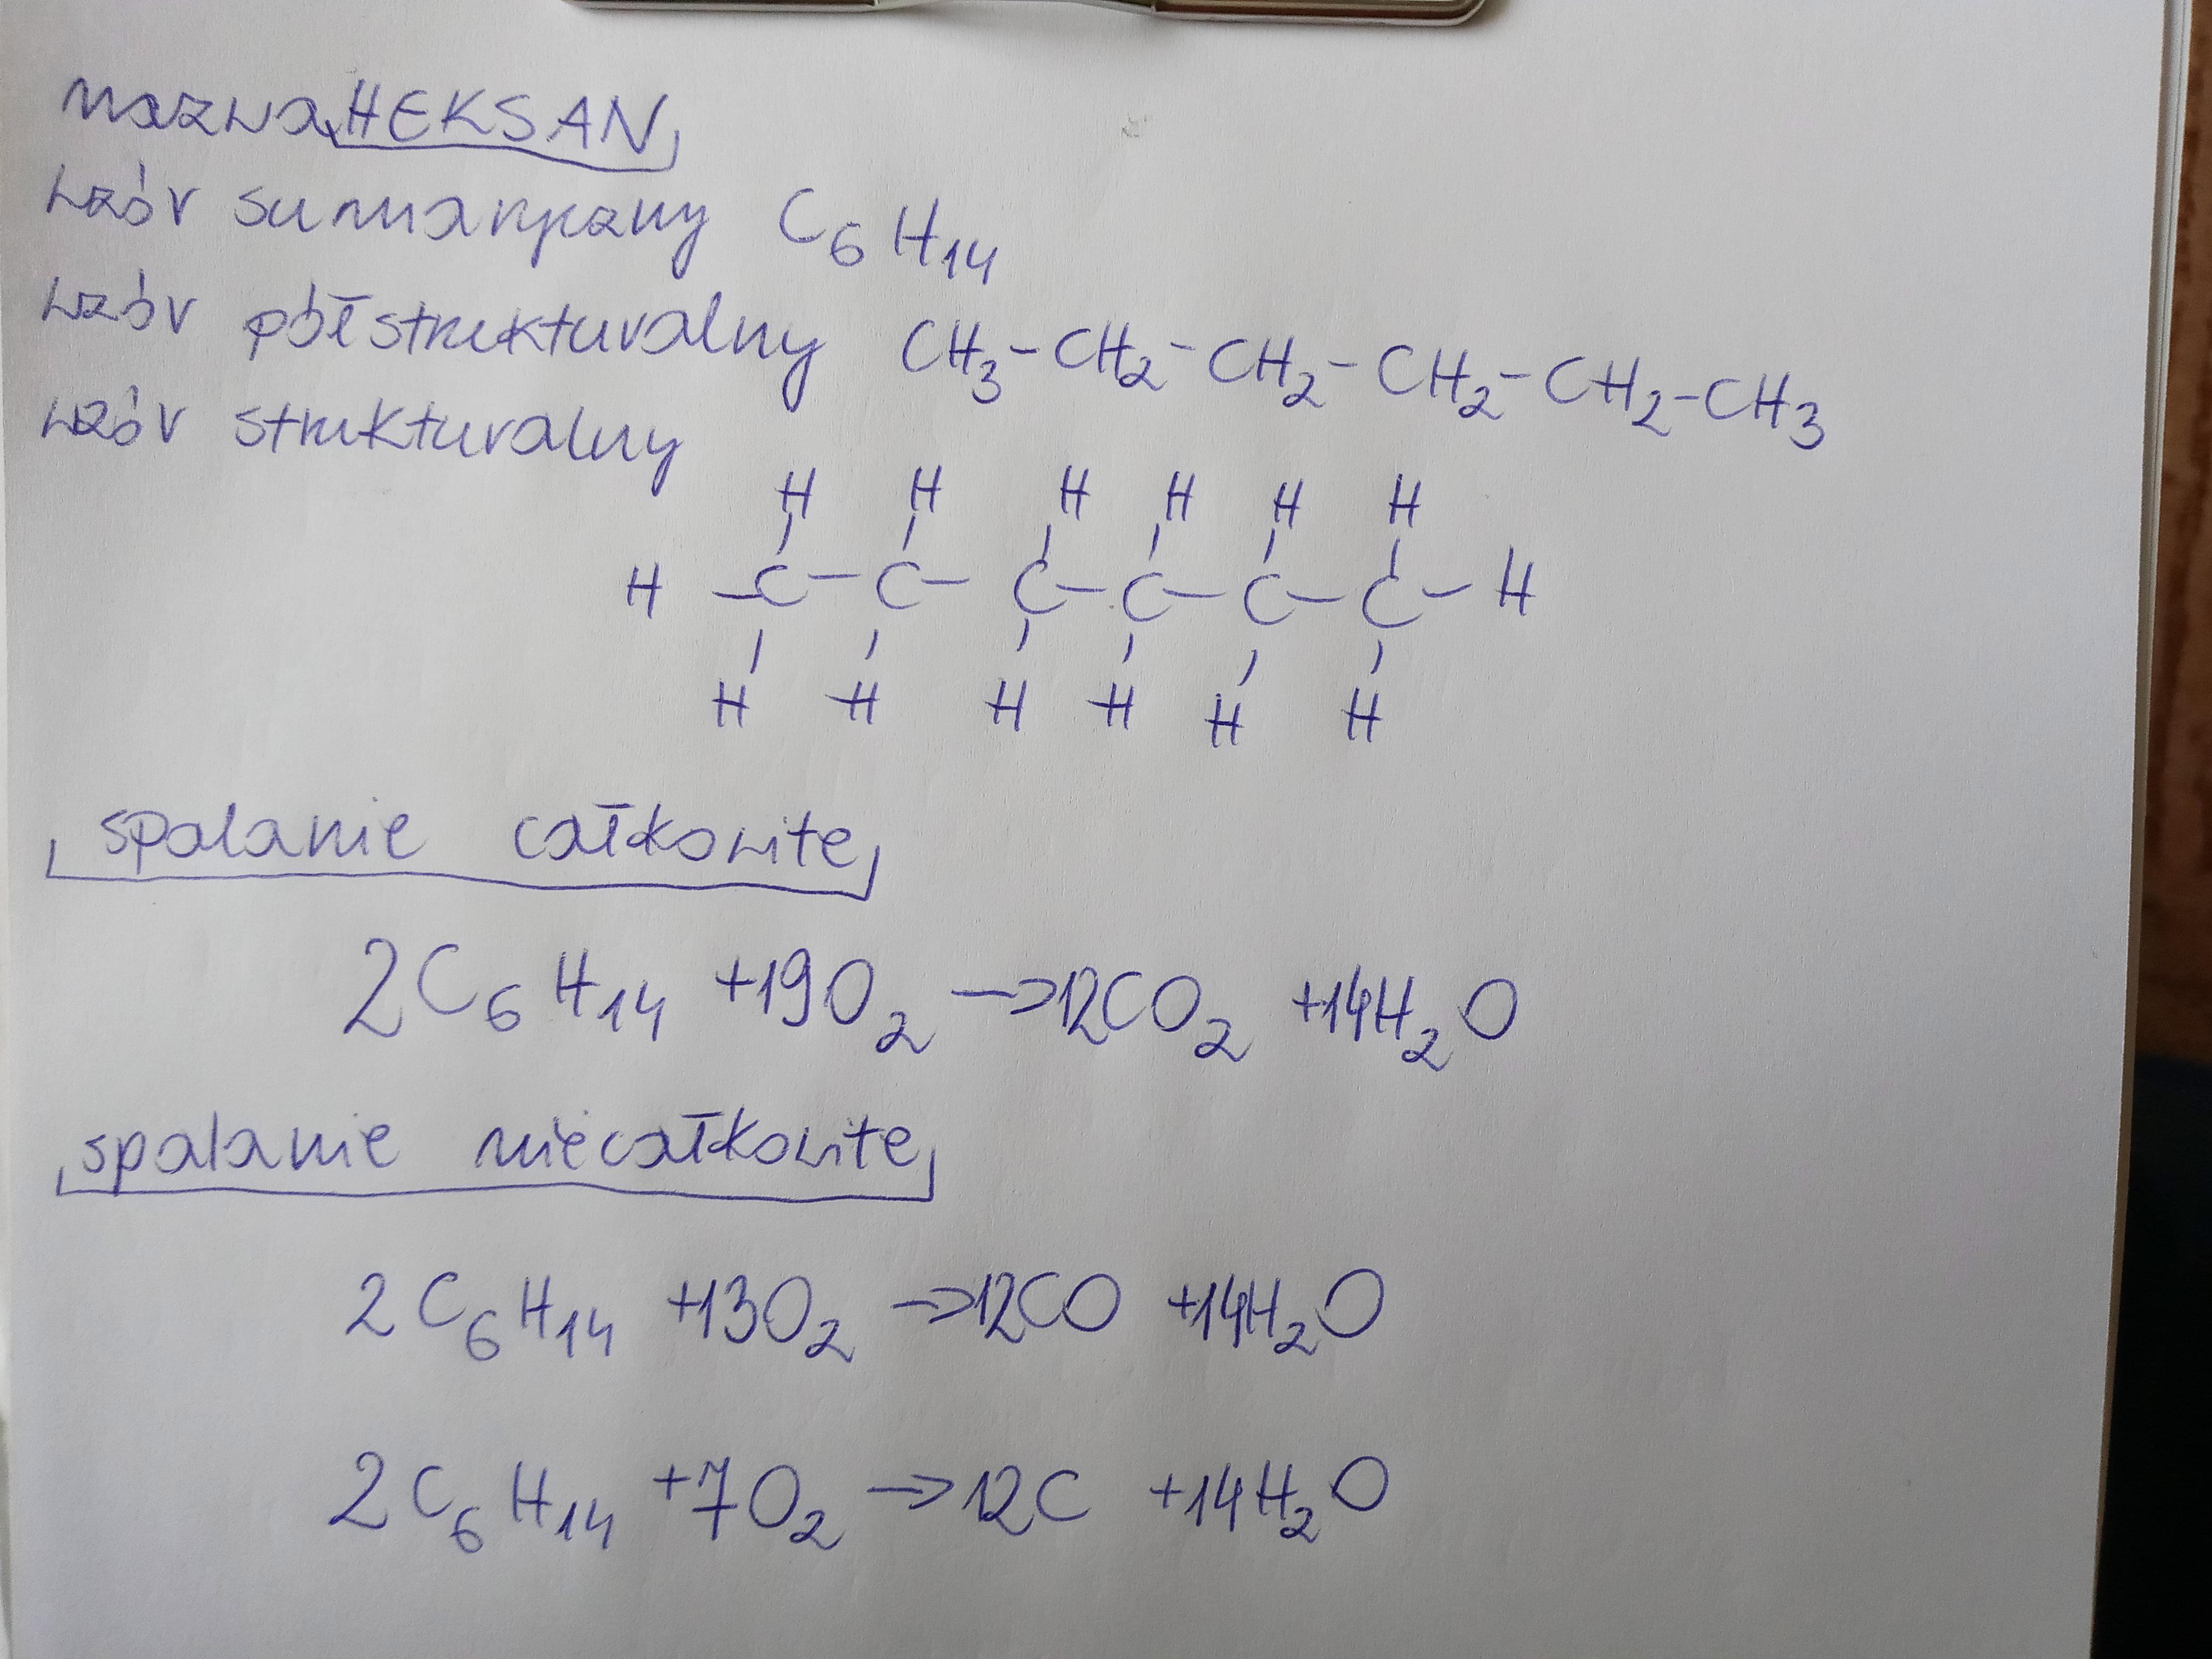 nazwa HEKSAN
wzór sumaryczny C₆H₁₄
wzór półstrukturalny CH₃-CH₂-CH₂-CH₂-CH₂-CH₃
wzór strukturalny
H H H H H H
H -C-C- C-C-C-C-H
H H H H H H
spalanie całkowite
2C₆H₁₄ +19O₂ →12CO₂ +14H₂O
spalanie niecałkowite
2C₆H₁₄ +13O₂ →12CO +14H₂O
2C₆H₁₄ +7O₂ →12C +14H₂O